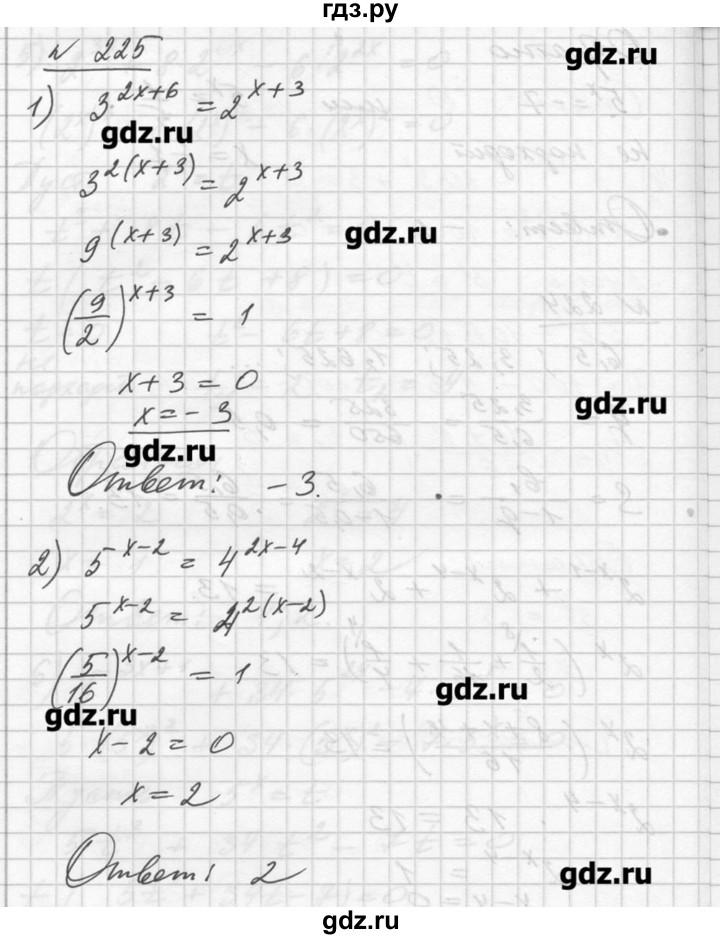 гдз.ру
№ 225
gdz.ru
1) 3^{2x+6} = 2^{x+3}
gdz.ru
3^{2(x+3)} = 2^{x+3}
9^{(x+3)} = 2^{x+3}
gdz.ru
(9/2)^{x+3} = 1
x+3=0
x=-3
gdz.ru
gdz.ru
Ответ: -3.
2) 5^{x-2} = 4^{2x-4}
5^{x-2} = 4^{2(x-2)}
(5/16)^{x-2} = 1
gdz.ru
gdz.ru
x-2=0
x=2
Ответ: 2
gdz.ru
gdz.ru